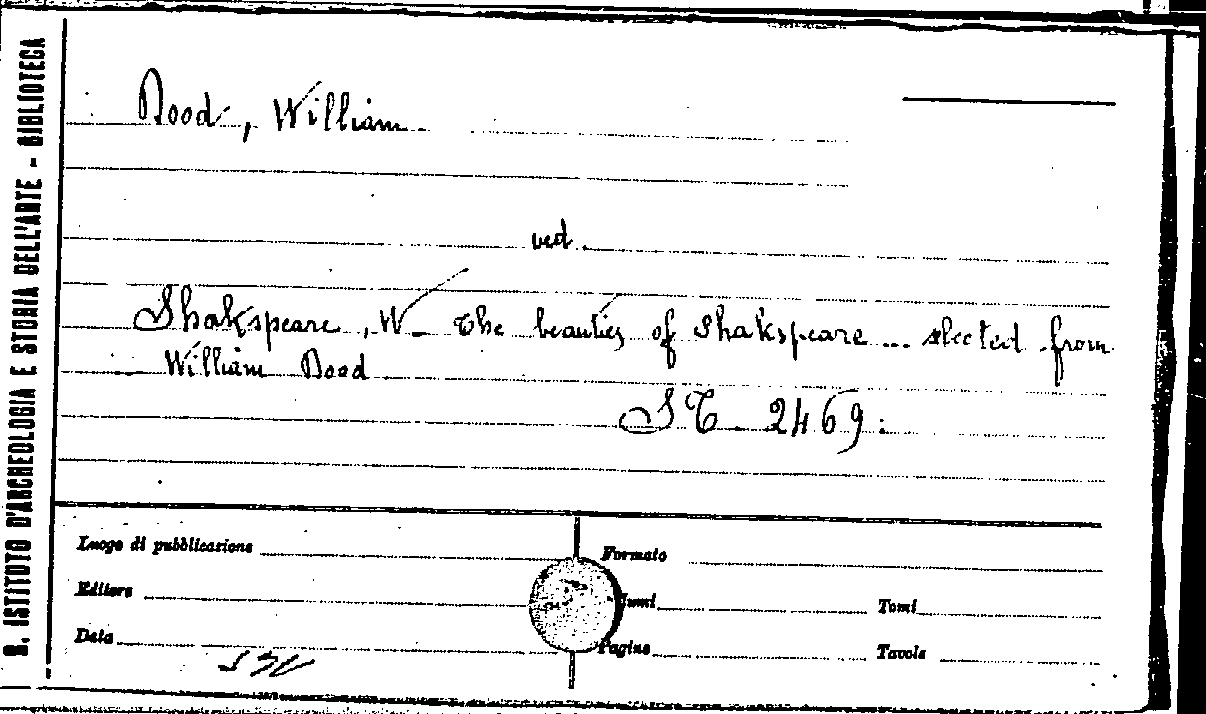 R. ISTITUTO D'ARCHEOLOGIA E STORIA DELL'ARTE - BIBLIOTECA
Dood, William
ved.
Shakspeare, W - The beauties of Shakspeare ... slected from
William Dood
ST. 2469.
Luogo di pubblicazione
Formato
Editore
Tomi
Data
Pagine
Tavole